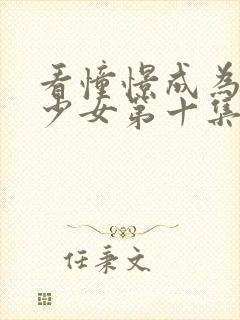 看憧憬成為
少女第十集
任秉文